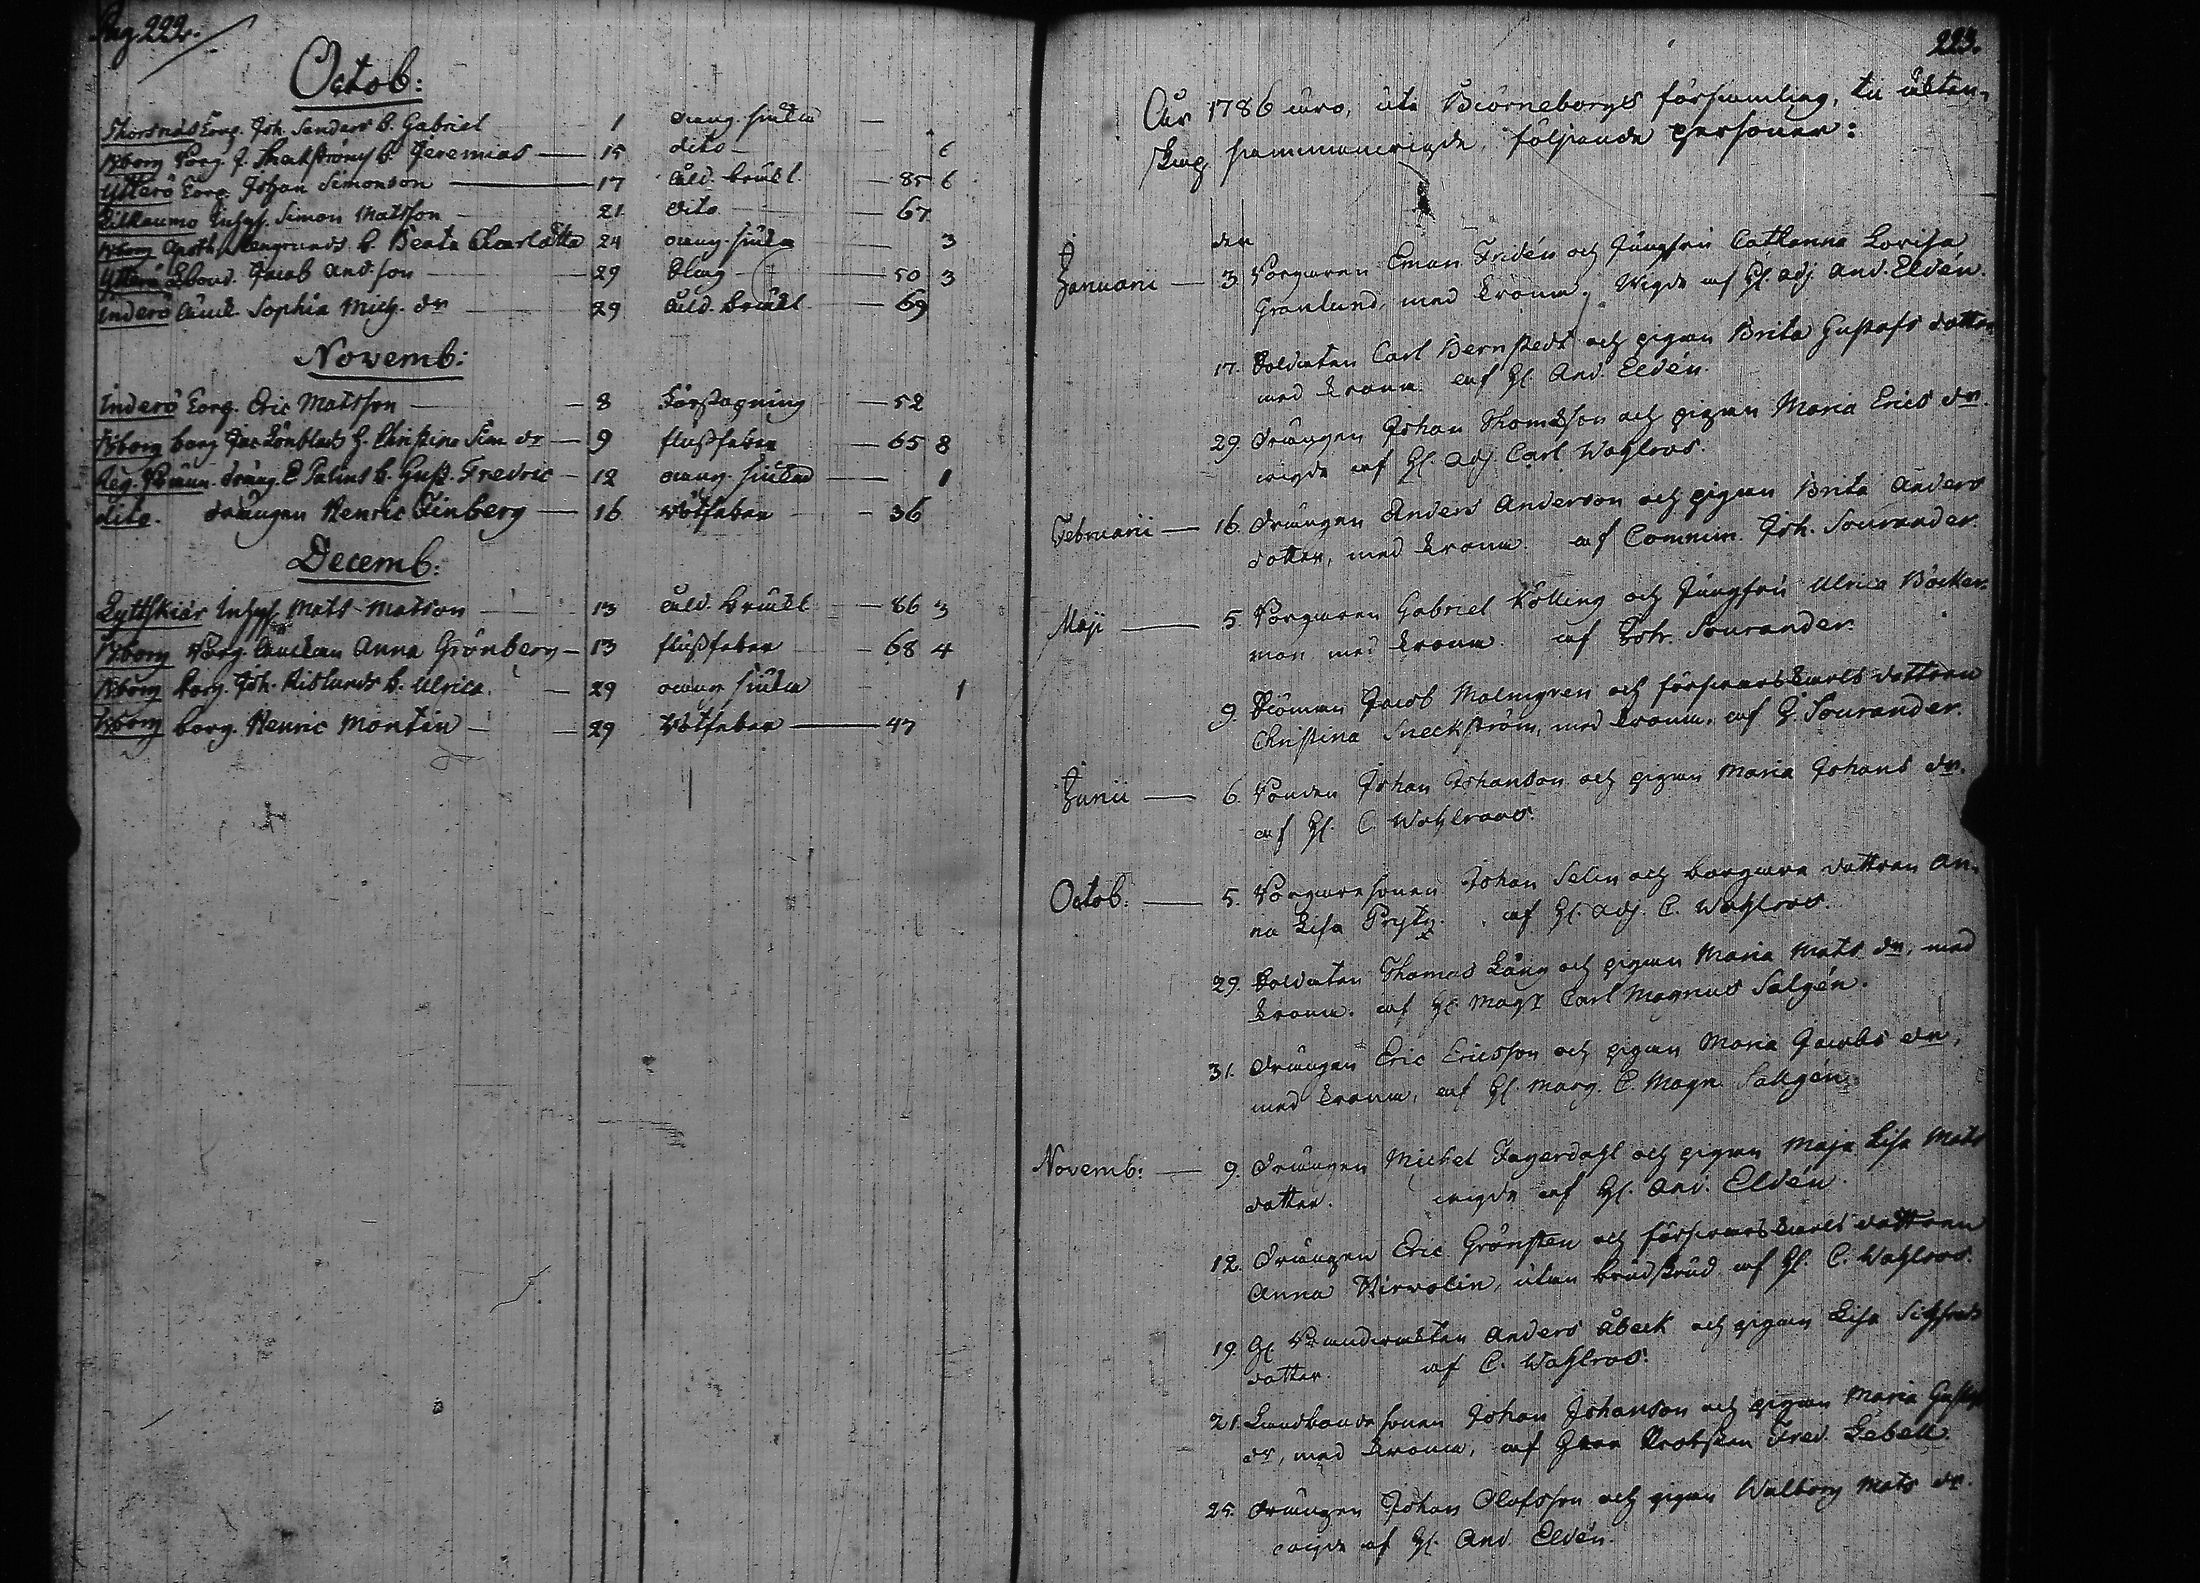 Pag 222.
Octob:
Thorsnäs Torp. Joh. Sanders b. Gabriel — 1 okang. siuka —
Bborg Borg. J. b. Jeremias — 15 dito — 6
Ytterö Torp. Johan Simonson — 17 åld. bräckl. — 85 6
Inhys. Simon Matsson — 21 dito — 67
Bborg Apoth. b. Beata Charlotta 24 okang. siuka — 3
Ytterö Jacob And.son — 29 — 50 3
Inderö Änk. Sophia Mich. dr — 29 åld. bräckl. — 69
Novemb:
Inderö Torp. Eric Matsson — 8 — 52
Bborg borg. Jac. Lönblads h. Christina Sim. dr — 9 flussfeber — 65 8
dräng. E. Palins b. Gust. Fredric — 12 okang. siukd — 1
dito. drängen Henric Finberg — 16 Rötfeber — 36
Decemb:
Lyttskiär Inhys. Mats Matson — 13 åld. bräckl. — 86 3
Bborg Borg. Änkan Anna Grönberg — 13 flussfeber — 68 4
Bborg borg. Joh. b. Ulrica. — 29 okang. siuka — 1
Bborg borg. Henric Montin — 29 Rötfeber — 47
223.
Åhr 1786 äro, uti Biörneborgs församling, til äkten-
skap sammanvigde följande personer:
den
Januarii — 3. Borgaren Eman. Fridén och Jungfru Catharina Lovisa
Granlund, med krona. Wigde af H. adj. And. Eldén.
17. Soldaten Carl Bernstedt och pigan Brita Gustafs dotter
med krona af H. And. Eldén.
29. Drängen Johan Thomasson och pigan Maria Erics dr.
wigde af H. Adj Carl Wahlroos.
Februarii — 16. Drängen Anders Anderson och pigan Brita Anders
dotter, med krona. af Commin. Joh. Sourander.
Maji — 5. Borgaren Gabriel Kölling och Jungfru Ulrica Böcker-
man med krona. af Joh. Sourander.
9. Siöman Jacob Malmgren och försvarskarls dottren
Christina Sneckström, med krona. af J. Sourander.
Junii — 6. Bonden Johan Johanson och pigan Maria Johans dr.
af H. C. Wahlroos.
Octob. — 5. Borgaresonen Johan Selin och borgare dottren An-
na Lisa Prytz. af H. adj. C. Wahlroos.
29. Soldaten Thomas Lång och pigan Maria Mats dr, med
krona. af H. Mag. Carl Magnus Salgén.
31. Drängen Eric Ericsson och pigan Maria Jacobs dr,
med krona, af H. Mag. C. Magn. Salgén.
Novemb: — 9. Drängen Michel Fagerdahl och pigan Maja Lisa Mats
dotter. wigde af H. And. Eldén.
12. Drängen Eric Grönsten och försvarskarls dottren
Anna Hirvolin, utan brudskrud af H. C. Wahlroos.
19. Anders Åbeck och pigan Lisa Sigfreds
dotter. af C. Wahlroos.
21. Landbondesonen Johan Johanson och pigan Maria Gustafs
dr, med krona, af Herr Probsten Fred. Lebell.
25. Drängen Johan Olofsson och pigan Walborg Mats dr.
wigde af H. And. Eldén.